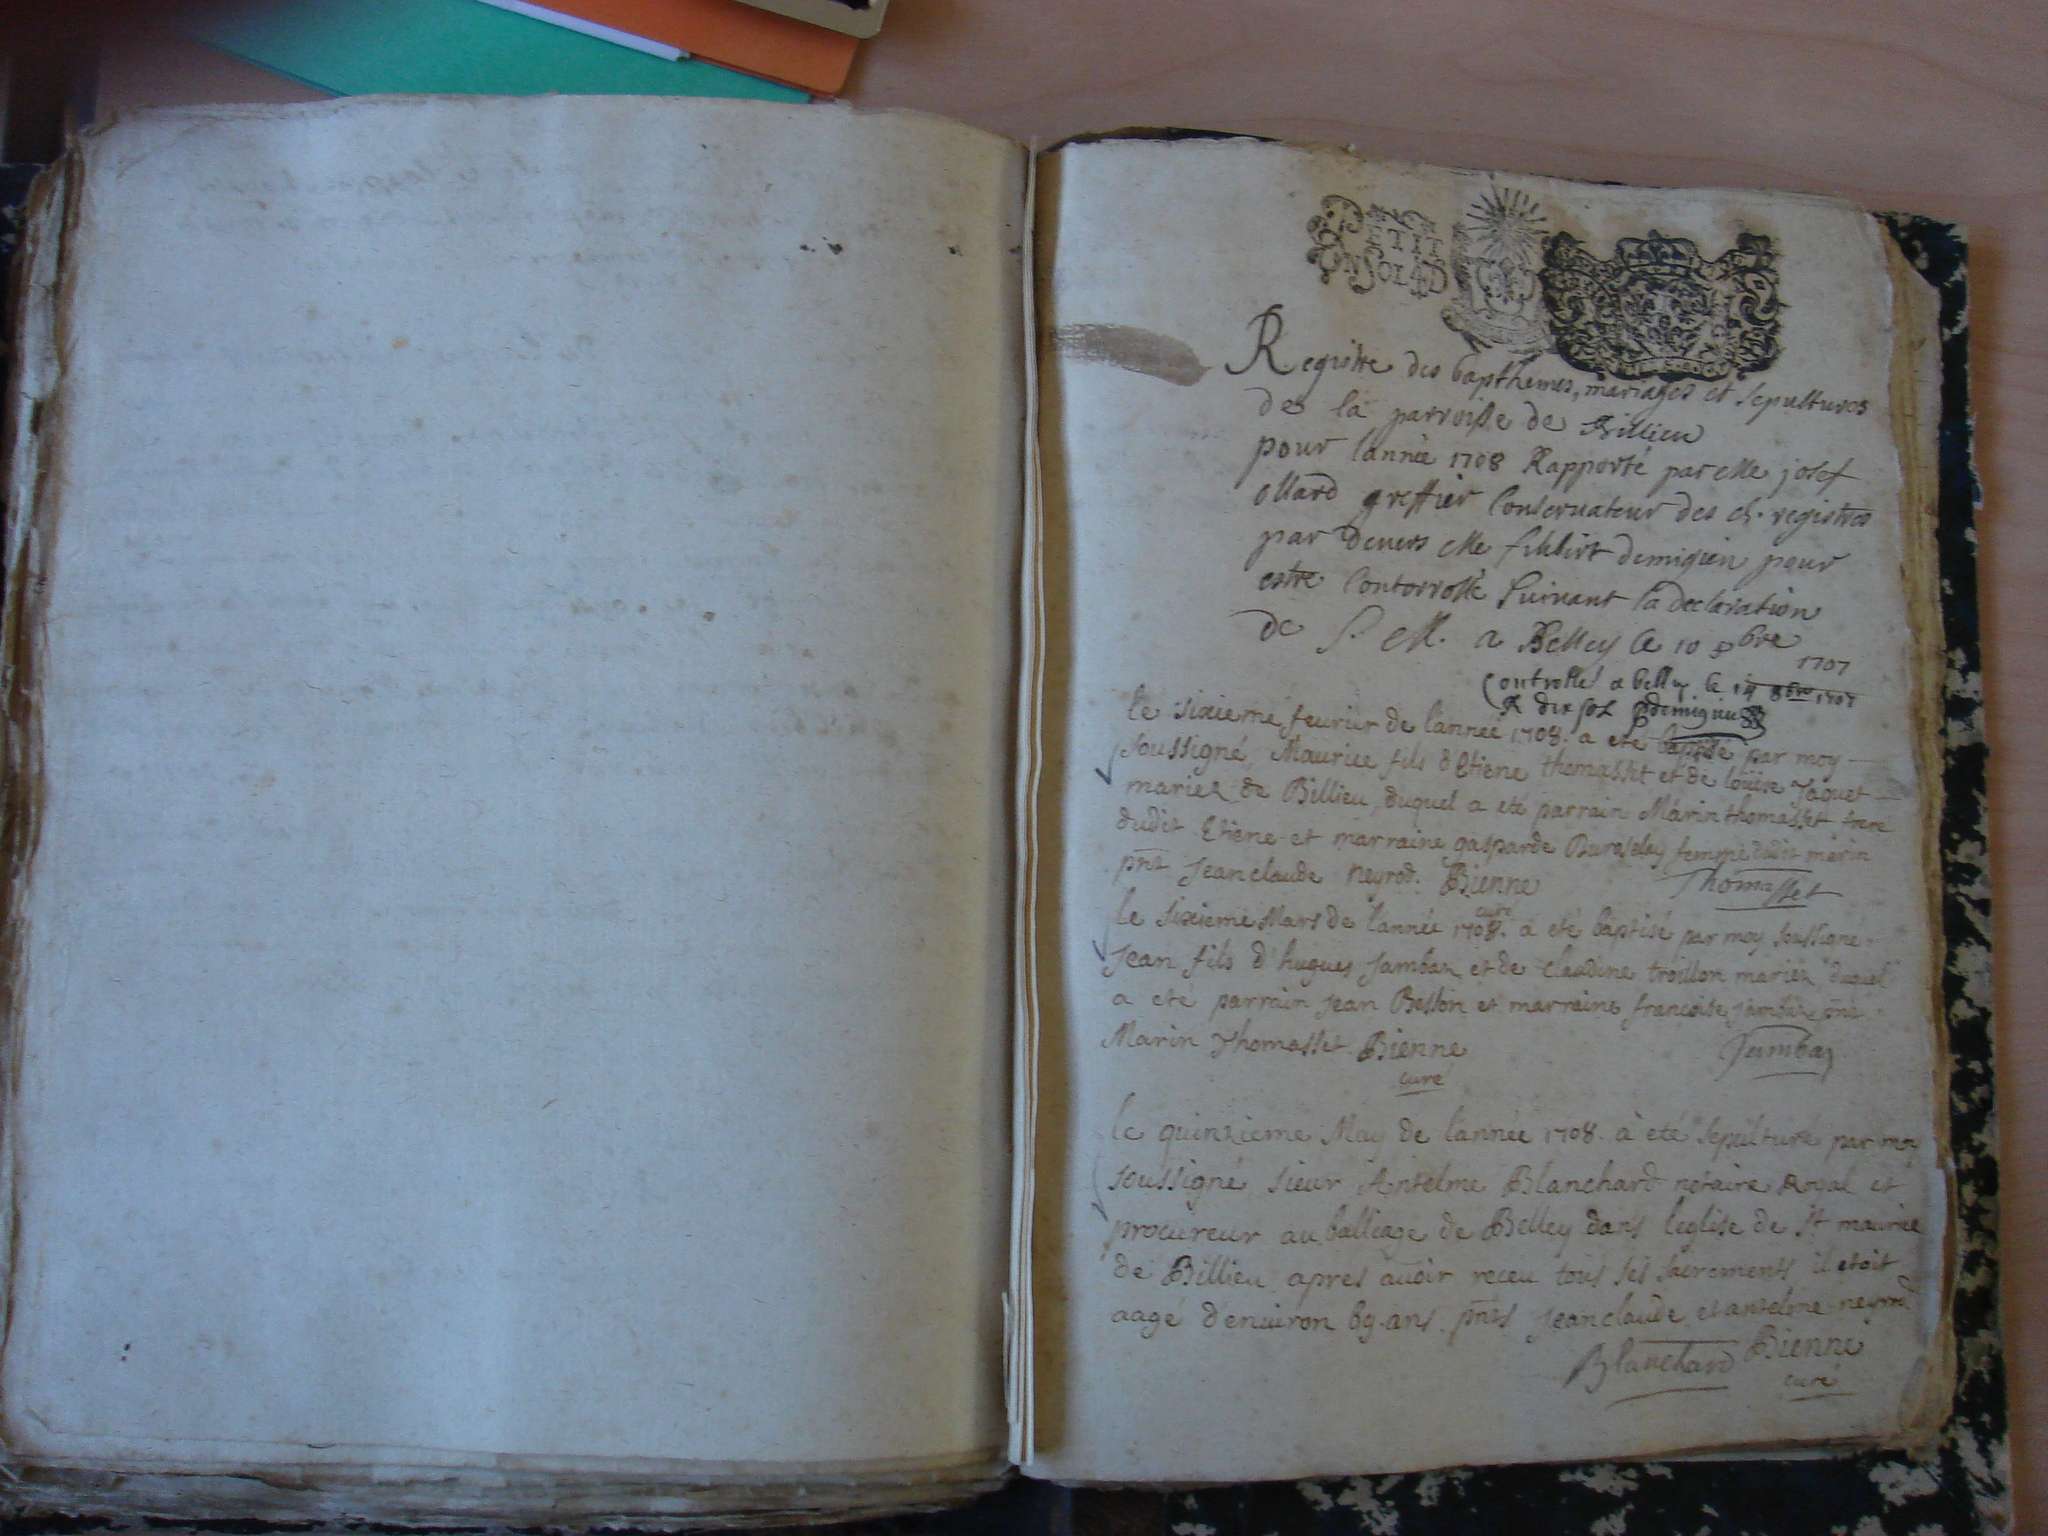 PETIT
UN SOL 4 D
Registre des bapthemes, mariages et sepultures
de la parroisse de Billieu
pour lannèe 1708 Rapporté par Me josef
ollard greffier Conseruateur des registres
par deuers Me filibert demigieu pour
estre Contorrollé Suiuant la declaration
de S. M. a Belley le 10 8bre
1707
Controllé a belley le 14 8bre 1707
R dix sols demigieu
le sixieme feurier de l'annèe 1708. a eté baptisé par moy
soussigné, Maurice fils d'Etiene thomasset et de loüise Jaquet
mariez de Billieu duquel a eté parrain Marin thomasset frere
dudit Etiene et marraine gasparde femme dudit marin
pnt Jean claude neyrod. Bienne Thomasset
curé
Le sixieme Mars de l'année 1708. a eté baptisé par moy soussigné
Jean fils d'hugues Jambaz et de claudine troillon mariez duquel
a eté parrain jean Besson et marraine françoise jambaz pnt
Marin Thomasset Bienne Jambaz
curé
Le quinzieme May de l'année 1708. à eté sepulturé par moy
soussigné sieur Antelme Blanchard notaire Royal et
procureur au balliage de Belley dans leglise de St maurice
de Billieu apres auoir receu tous ses sacrements il etoit
aagé d'enuiron 69 ans pnts Jean claude et antelme neyrod
Blanchard Bienne
curé